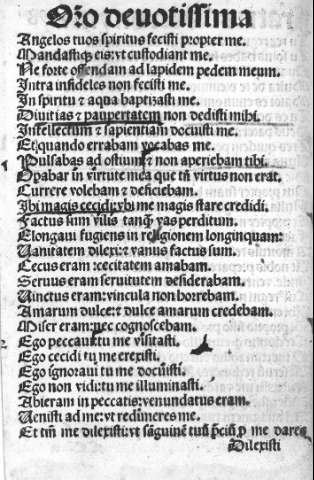 Oro deuotissima
Angelos tuos spiritus fecisti propter me.
Mandastiqʒ eis: vt custodiant me.
Ne forte offendam ad lapidem pedem meum.
Intra infideles non fecisti me.
In spiritu ⁊ aqua baptizasti me.
Diuitias ⁊ paupertatem non dedisti mihi.
Intellectum ⁊ sapientiam docuisti me.
Et quando errabam vocabas me.
Pulsabas ad ostium ⁊ non aperiebam tibi.
Opabar in virtute mea que tñ virtus non erat.
Currere volebam ⁊ deficiebam.
Ibi magis cecidi: vbi me magis stare credidi.
Factus sum vilis tanqʒ vas perditum.
Elongaui fugiens in religionem longinquam:
Uanitatem dilexi: ⁊ vanus factus sum.
Cecus eram: ⁊ cecitatem amabam.
Seruus eram seruitutem desiderabam.
Uinctus eram: vincula non horrebam.
Amarum dulce: ⁊ dulce amarum credebam.
Miser eram: nec cognoscebam.
Ego peccaui: tu me visitasti.
Ego cecidi tu me erexisti.
Ego ignoraui tu me docuisti.
Ego non vidi: tu me illuminasti.
Abieram in peccatis: venundatus eram.
Uenisti ad me: vt redimeres me.
Et tm̄ me dilexisti: vt sanguinē tuū p̄ciū ꝓ me dares
Dilexisti